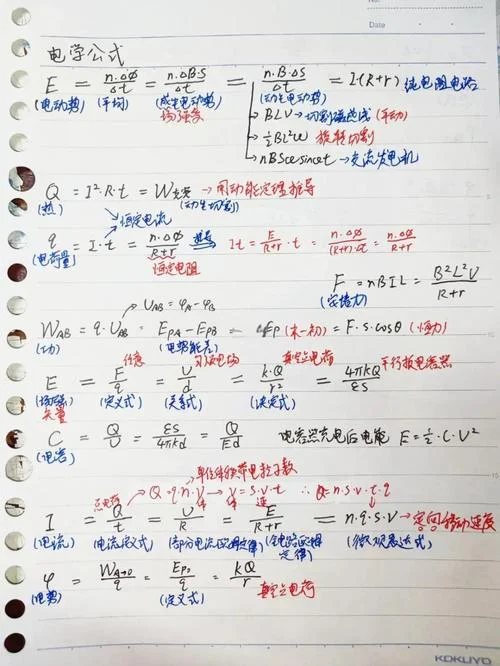 Date
电学公式
E = n·ΔΦ/Δt = n·ΔB·S/Δt = n·B·ΔS/Δt = I·(R+r) 纯电阻电路
(电动势) (平均) (感生电动势) (动生电动势)
→ BLV → 切割磁感线 (平动)
→ ½BL²ω 旋转切割
→ nBSω sinωt → 交流发电机
Q = I²·R·t = W克安 → 用动能定理推导
(热) (动生切割)
恒定电流
q = I·t = n·ΔΦ/R+r 推导 It = E/R+r·t = n·ΔΦ/(R+r)·Δt = n·ΔΦ/R+r
(电荷量) 恒定电阻
F = nBIL = B²L²V/R+r
(安培力)
U_AB = φ_A - φ_B
W_AB = q·U_AB = E_PA - E_PB = (末-初) = F·s·cosθ (恒力)
(功) (电势能差)
任意 匀强电场 真空点电荷 平行板电容器
E = F/q = U/d = k·Q/r² = 4πkQ/εS
(场强) (定义式) (关系式) (决定式)
矢量
C = Q/U = εS/4πkd = Q/Ed 电容器充电后电能 E = ½·C·U²
(电容)
单位体积带电粒子数
总电荷 Q = q·n·V → V = S·v·t ∴ Q = n·s·v·t·q
I = Q/t = U/R = E/R+r = n·q·s·v → 定向移动速度
(电流) (电流定义式) (部分电流欧姆定律) (全电路欧姆定律) (微观表达式)
φ = W_A→0/q = E_P/q = kQ/r
(电势) (定义式) 真空点电荷
KOKUYO